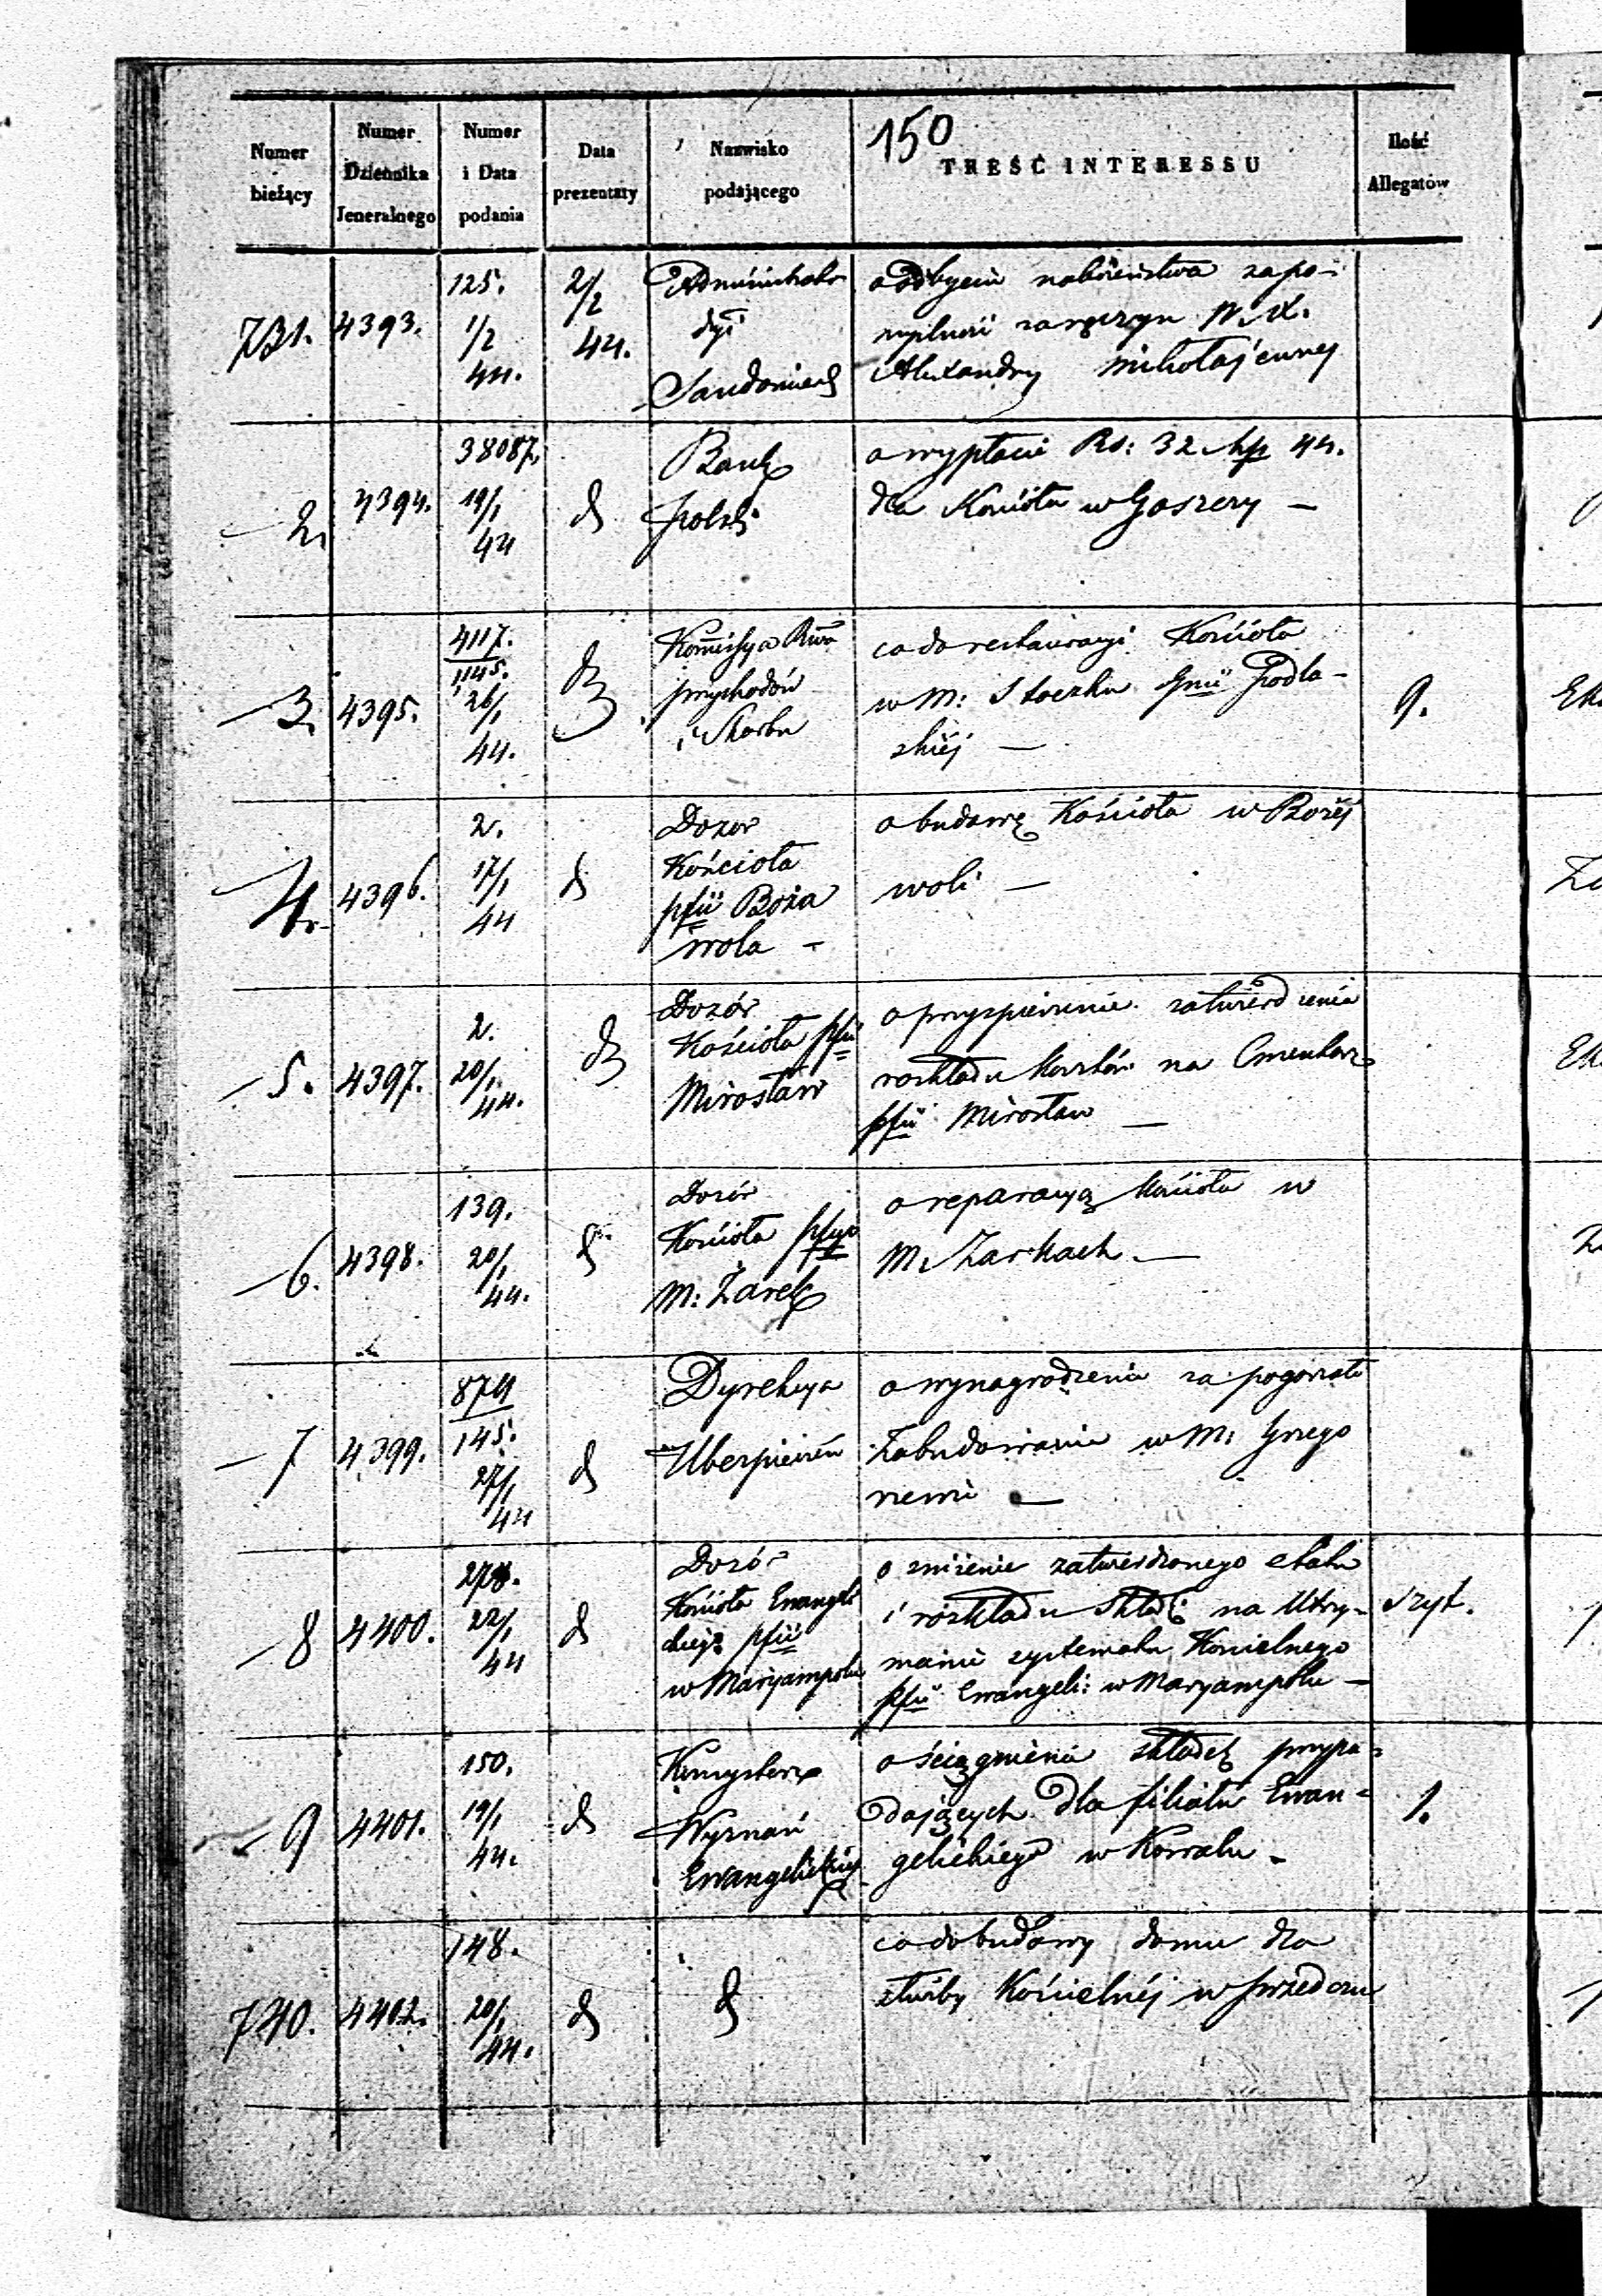 150
Numer bieżący
Numer Dziennika Jeneralnego
Numer i Data podania
Data prezentaty
Nazwisko podającego
TREŚĆ INTERESSU
Ilość Allegatów
731. 4393.
125.
1/2
44.
2/2
44.
Administrator
dyi
Sandomiersk
o odbyciu nabożeństwa za po-
myślność zaręczyn W. X.
Alexandry Mikołajewnej
2. 4394.
38087.
19/1
44
d
Bank
Polski
o wypłacie Rs: 32 kp 44.
dla Kościoła w Goszczy —
3. 4395.
4117.
1145.
26/1
44.
d
Komissya Rwa
przychodów
i Skarbu
co do restauracyi Kościoła
w M: Stoczku Gnii Podla-
skiéj —
9.
4. 4396.
2.
17/1
44
d
Dozor
Kościoła
pfii Boża
wola —
o budowę Kościoła w Bożéj
woli —
5. 4397.
2.
20/1
44.
d
Dozór
Kościoła pfii
Mirosław
o przyspieszenie zatwierdzenia
rozkładu kosztów na Cmentarz
pfii Mirosław —
6. 4398.
139.
20/1
44.
d
Dozór
Kościoła pfyi
M: Żarek
o reparacyą Kościoła w
M. Żarkach —
7 4399.
879
145.
27/1
44
d
Dyrekcya
Ubezpieczeń
o wynagrodzenie za pogorzałe
Zabudowania w M: Grzego
rzewie —
8 4400.
278.
22/1
44
d
Dozór
Kościoła Ewangeli
ckiego pfii
w Maryampolu
o zniżenie zatwierdzonego etatu
i rozkładu Składki na Utrzy-
manie systematu Kościelnego
pfii Ewangeli: w Maryampolu —
szyt.
9 4401.
150.
19/1
44.
d
Konsystorz
Wyznań
Ewangelickich
o ściągnienie składek przypa-
dających dla filiału Ewan-
gelickiego w Kowalu —
1.
740. 4402.
148.
20/1
44.
d
d
co do budowy domu dla
służby Kościelnéj w Przedczu